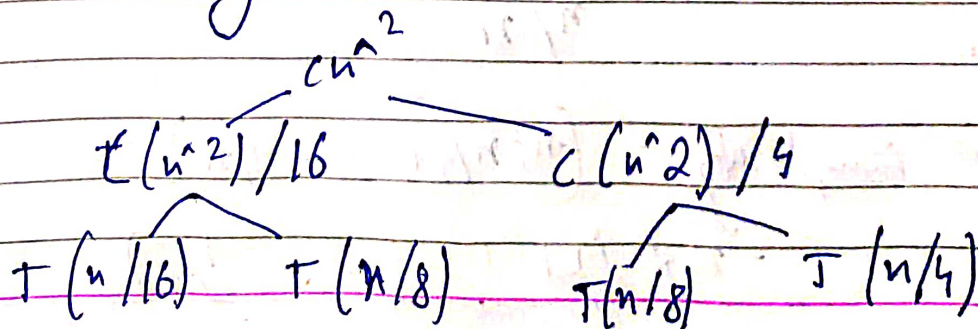 cn^2
c(n^2)/16 c(n^2)/4
T(n/16) T(n/8) T(n/8) T(n/4)